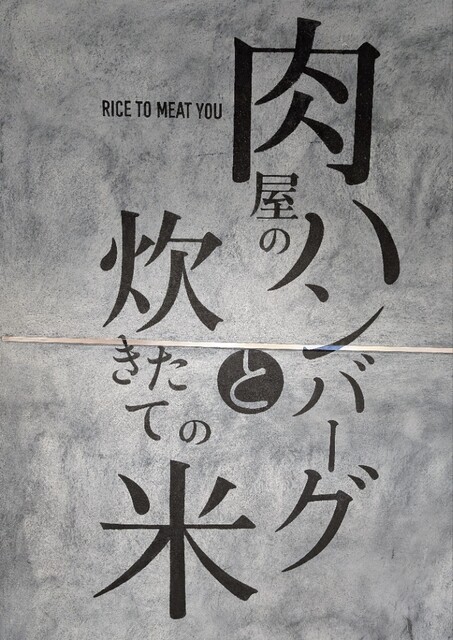 RICE TO MEAT YOU
肉屋の
ハンバーグ
と
炊きたての
米